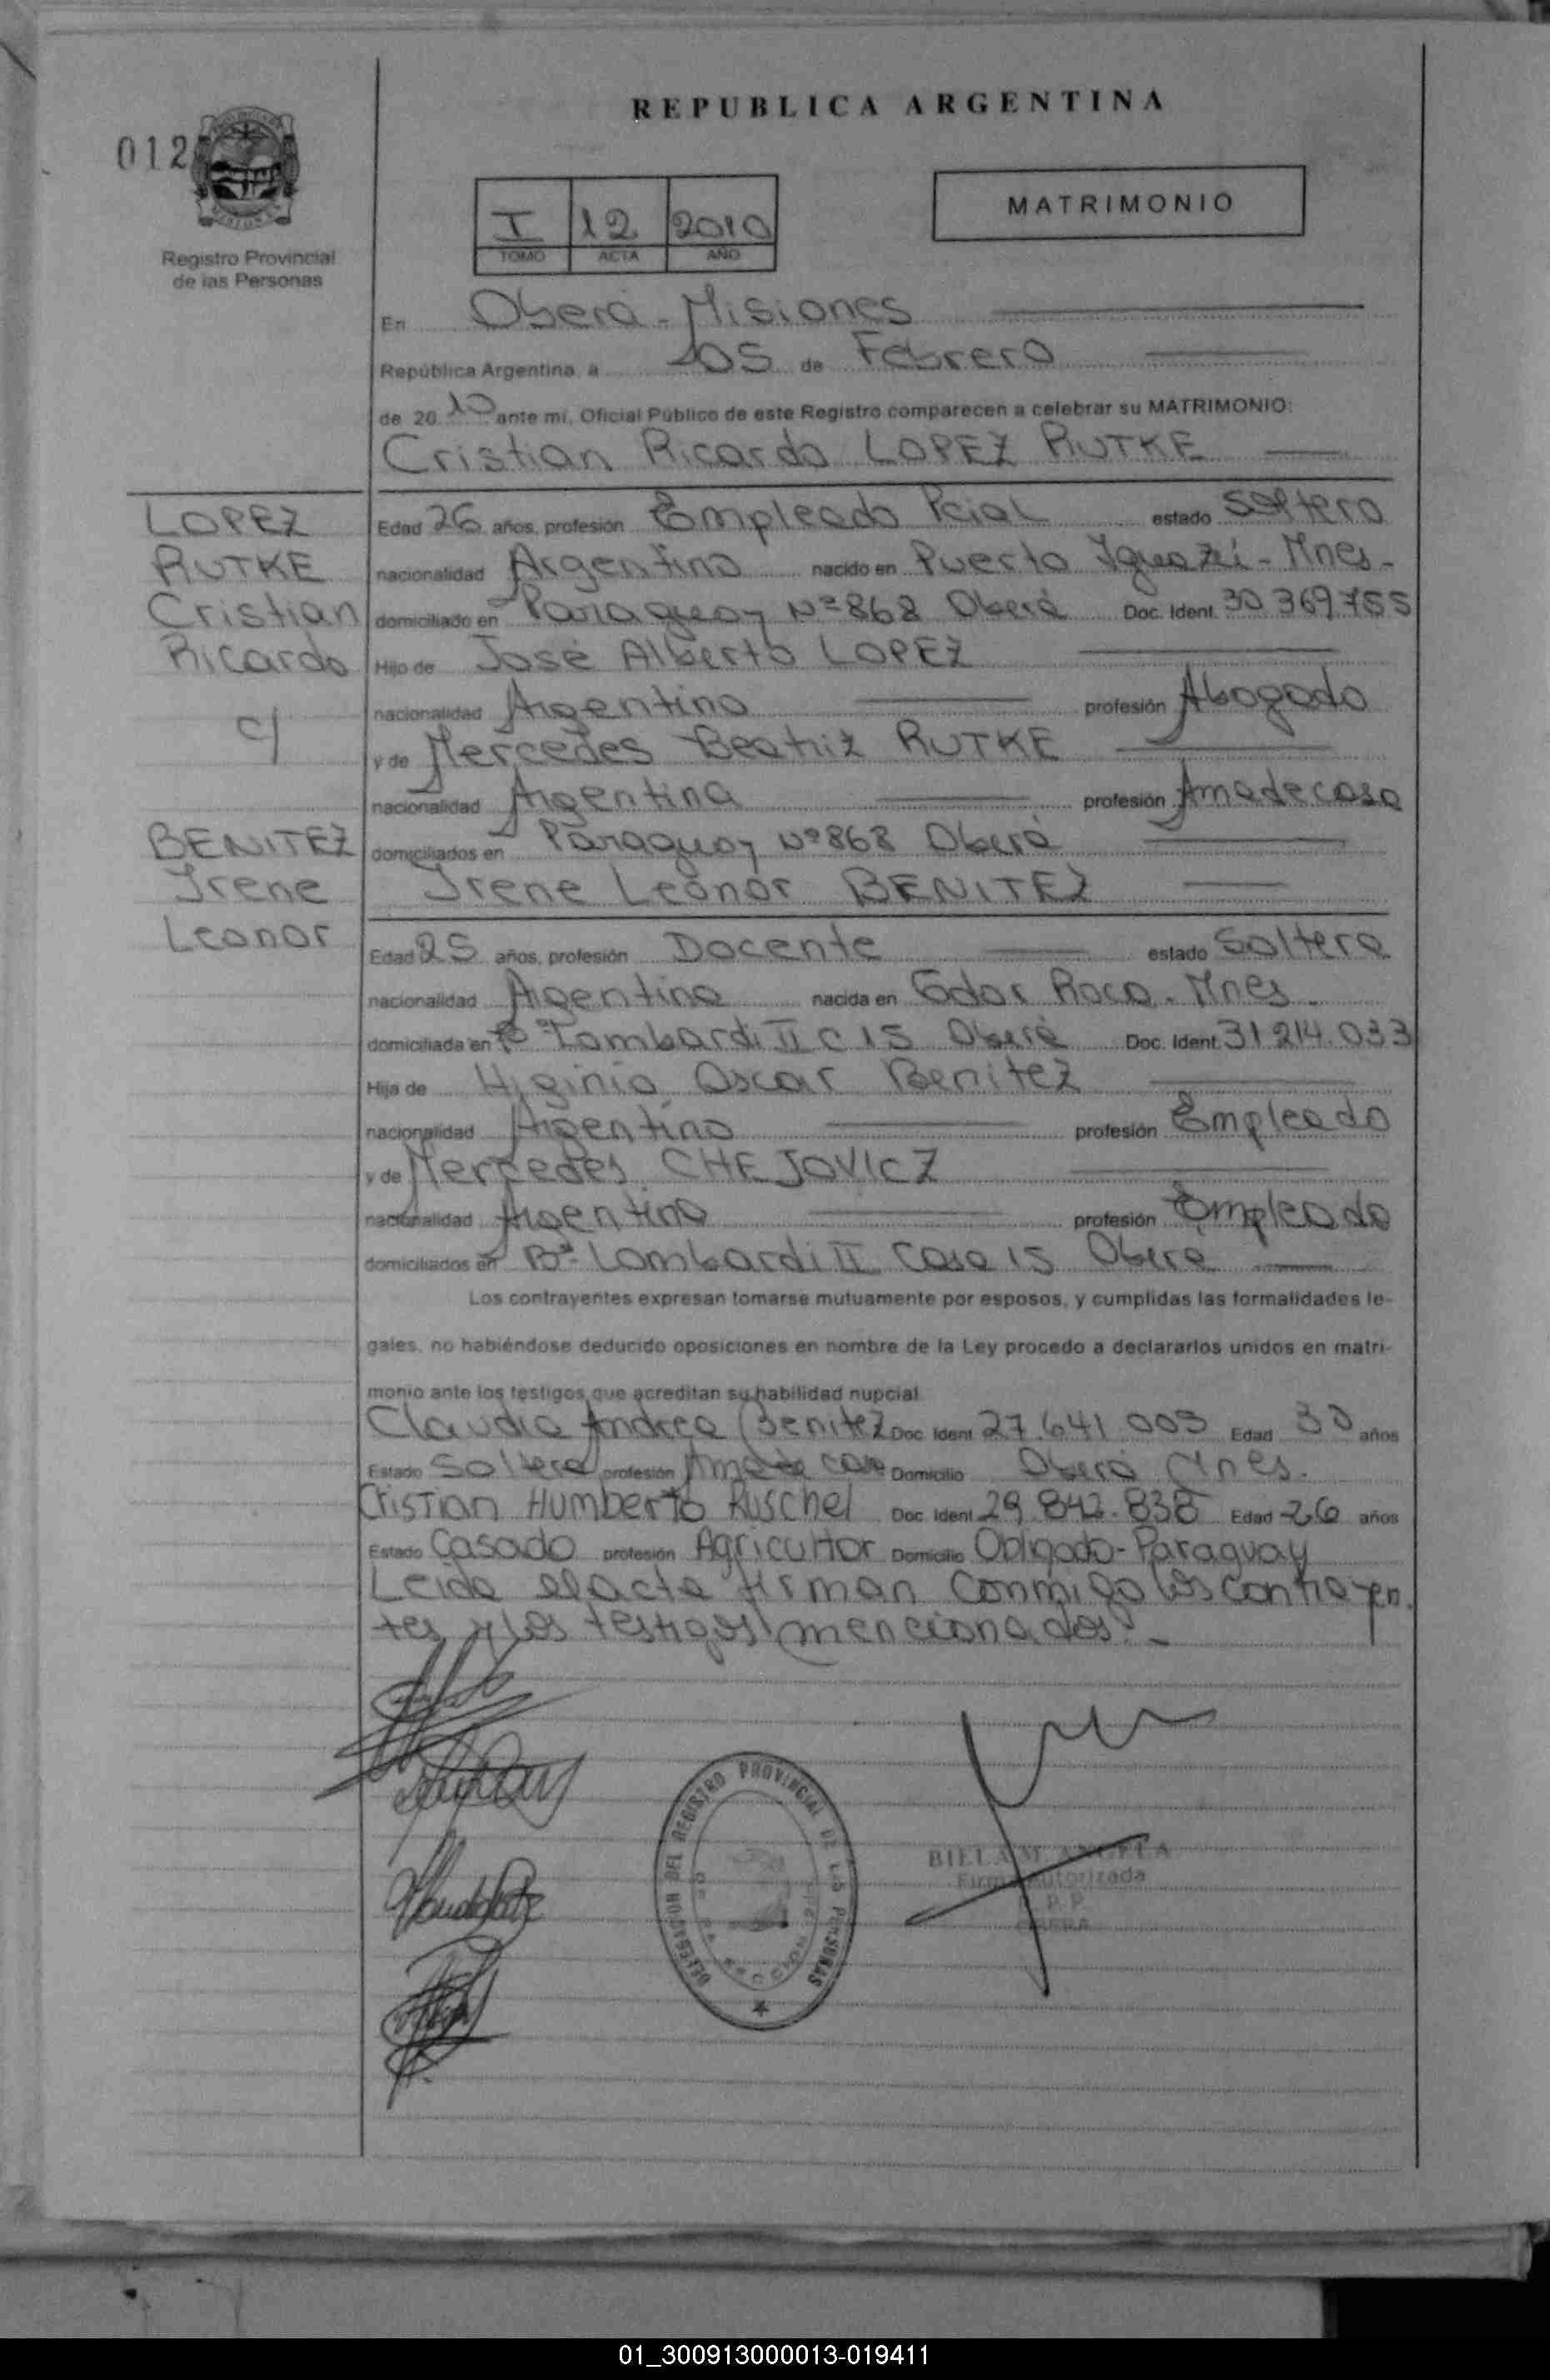 REPUBLICA ARGENTINA
012
Registro Provincial
de las Personas
I 12 2010
TOMO ACTA AÑO
MATRIMONIO
En Oberá - Misiones
República Argentina a 05 de Febrero
de 2010 ante mi, Oficial Público de este Registro comparecen a celebrar su MATRIMONIO:
Cristian Ricardo LOPEZ RUTKE
LOPEZ
RUTKE
Cristian
Ricardo
c/
BENITEZ
Irene
Leonor
Edad 26 años, profesión Empleado Pcial estado soltero
nacionalidad Argentino nacido en Puerto Iguazú - Mnes -
domiciliado en Paraguay Nº 868 Oberá Doc. Ident. 30.369.755
Hijo de José Alberto LOPEZ
nacionalidad Argentino profesión Abogado
y de Mercedes Beatriz RUTKE
nacionalidad Argentina profesión Ama de casa
domiciliados en Paraguay Nº 868 Oberá
Irene Leonor BENITEZ
Edad 25 años, profesión Docente estado Soltera
nacionalidad Argentina nacida en Gdor Roca - Mnes.
domiciliada en Bº Lombardi II C 15 Oberá Doc. Ident. 31.214.033
Hija de Higinio Oscar Benitez
nacionalidad Argentino profesión Empleado
y de Mercedes CHEJOVICZ
nacionalidad Argentina profesión Empleada
domiciliados en Bº Lombardi II Casa 15 Oberá
Los contrayentes expresan tomarse mutuamente por esposos, y cumplidas las formalidades le-
gales, no habiéndose deducido oposiciones en nombre de la Ley procedo a declararlos unidos en matri-
monio ante los testigos que acreditan su habilidad nupcial
Claudia Andrea Benitez Doc. Ident. 27.641.003 Edad 30 años
Estado Soltera profesión Ama de casa Domicilio Oberá Mnes.
Cristian Humberto Ruschel Doc. Ident. 29.842.838 Edad 26 años
Estado Casado profesión Agricultor Domicilio Obligado - Paraguay
Leida el acta firman conmigo los contrayen.
tes y los testigos mencionados.-
DELEGACION DEL REGISTRO PROVINCIAL DE LAS PERSONAS
BIELA M. ANGELA
Firma Autorizada
R.P.P.
OBERA
01_300913000013-019411